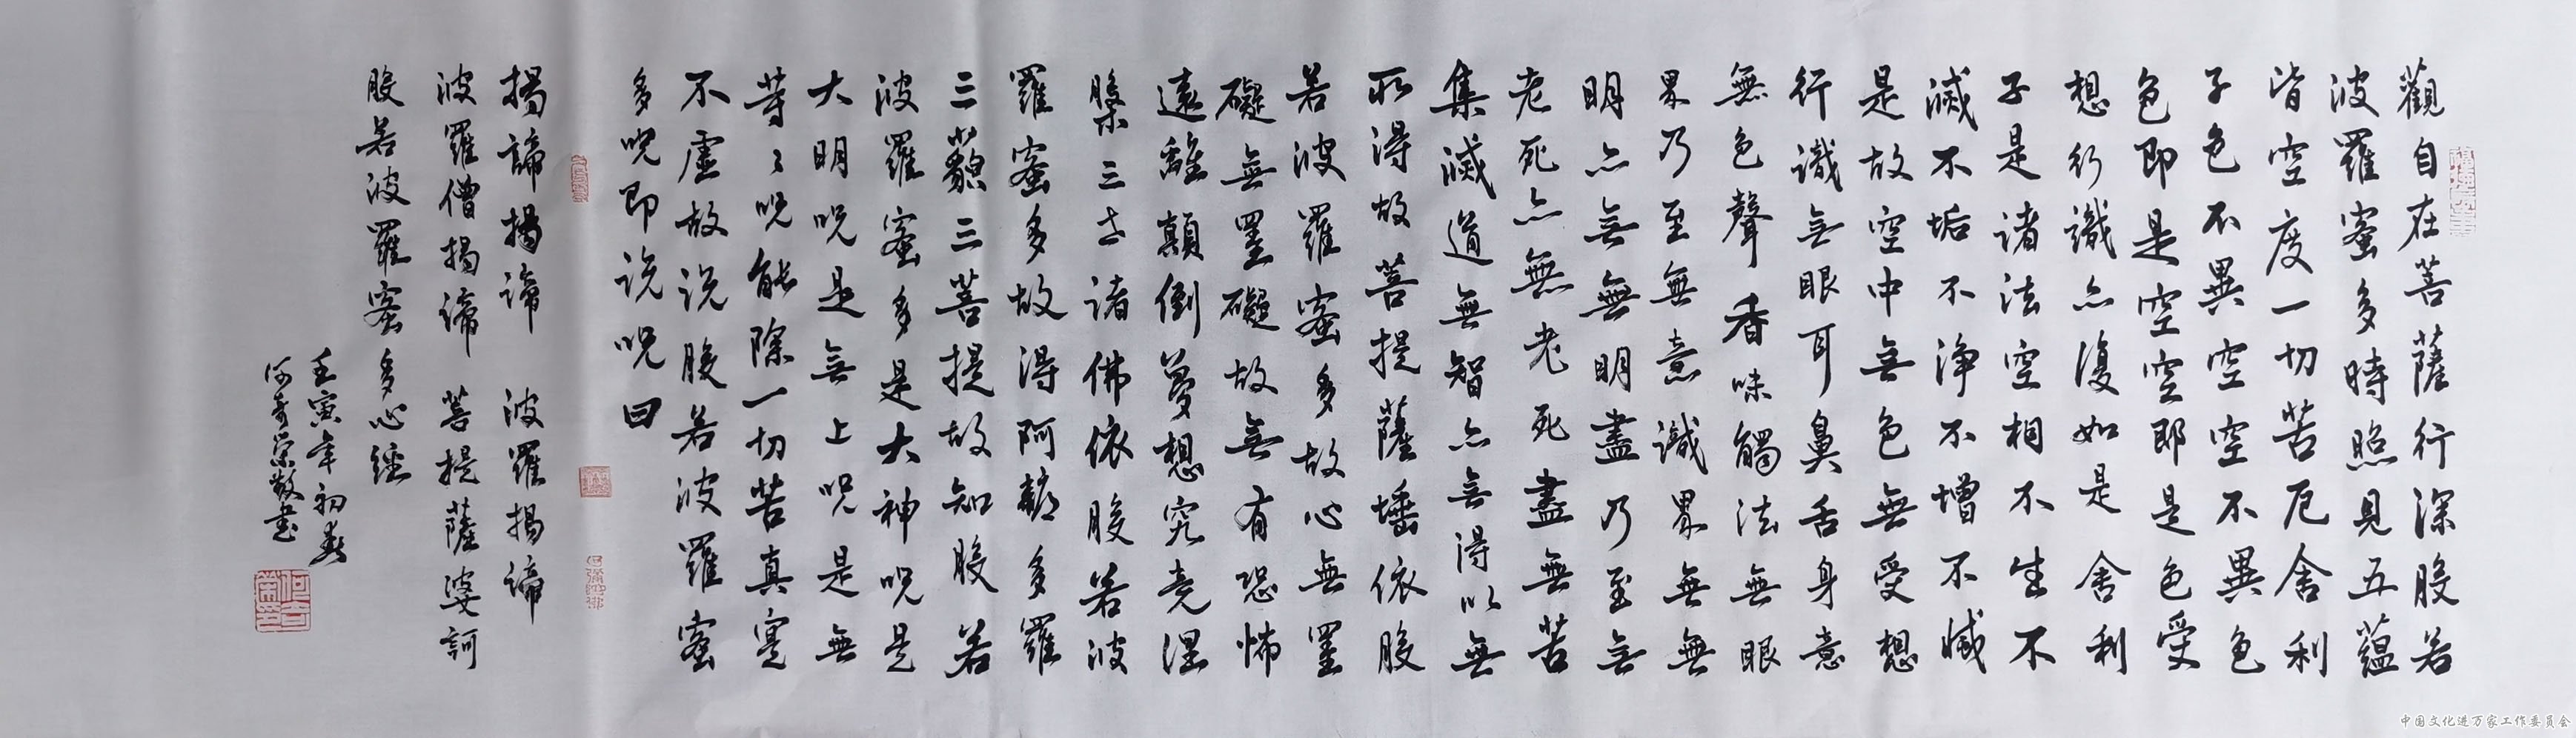 觀自在菩薩行深般若
波羅蜜多時照見五蘊
皆空度一切苦厄舍利
子色不異空空不異色
色即是空空即是色受
想行識亦復如是舍利
子是諸法空相不生不
滅不垢不淨不增不減
是故空中無色無受想
行識無眼耳鼻舌身意
無色聲香味觸法無眼
界乃至無意識界無無
明亦無無明盡乃至無
老死亦無老死盡無苦
集滅道無智亦無得以無
所得故菩提薩埵依般
若波羅蜜多故心無罣
礙無罣礙故無有恐怖
遠離顛倒夢想究竟涅
槃三世諸佛依般若波
羅蜜多故得阿耨多羅
三藐三菩提故知般若
波羅蜜多是大神呪是
大明呪是無上呪是無
等々呪能除一切苦真實
不虛故說般若波羅蜜
多呪即說呪曰
揭諦揭諦 波羅揭諦
波羅僧揭諦 菩提薩婆訶
般若波羅蜜多心經
壬寅年初春
何奇榮敬書
何奇榮印
中国文化进万家工作委员会